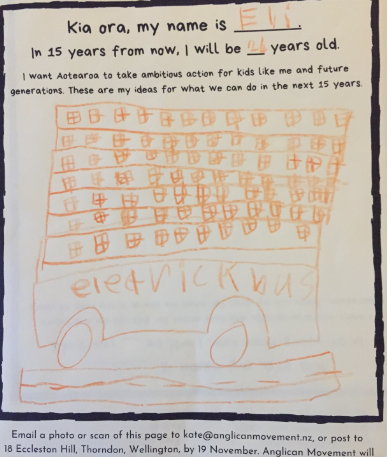 Kia ora, my name is Eli.
In 15 years from now, I will be years old.
I want Aotearoa to take ambitious action for kids like me and future
generations. These are my ideas for what we can do in the next 15 years.
eletrick bus
Email a photo or scan of this page to kate@anglicanmovement.nz, or post to
18 Eccleston Hill, Thorndon, Wellington, by 19 November. Anglican Movement will